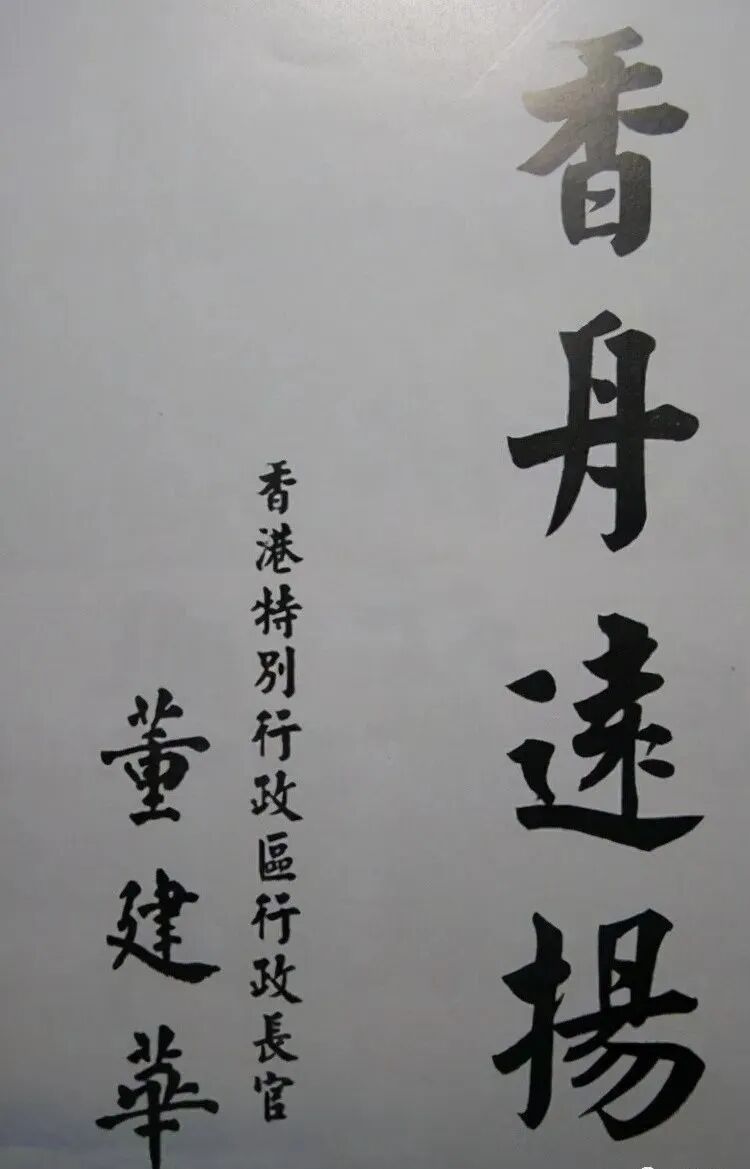 香舟遠揚
香港特別行政區行政長官
董建華